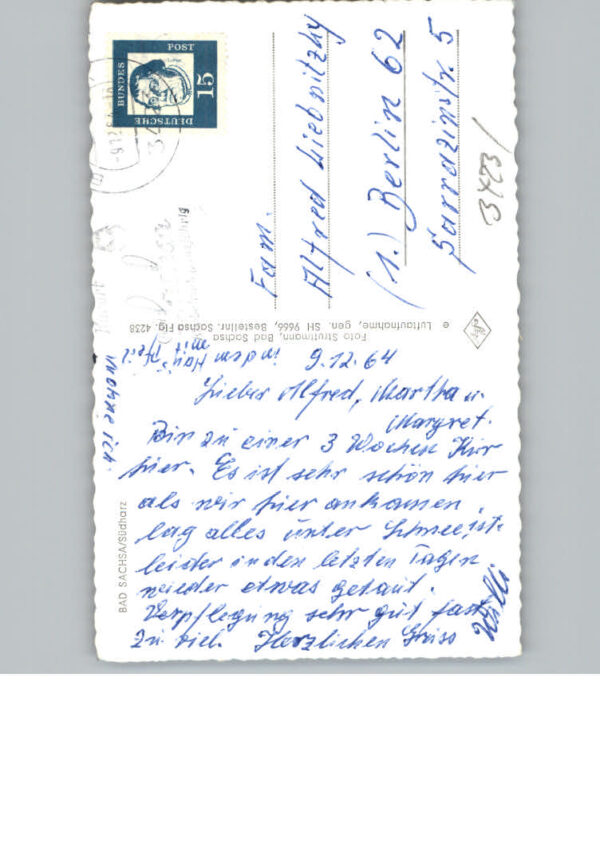 9.12.64
Lieber Alfred, Martha u.
Margret.
Bin zu einer 3 Wochen Kur
hier. Es ist sehr schön hier
als wir hier ankamen,
lag alles unter Schnee, ist
leider in den letzten Tagen
wieder etwas getaut.
Verpflegung sehr gut fast
zu viel. Herzlichen Gruss
Willi
in dem Haus
mit Pfeil
wohne ich.
BAD SACHSA/Südharz
Foto Struttmann, Bad Sachsa
e Luftaufnahme, gen. SH 9666, Bestellnr. Sachsa Flg. 4238
Fam.
Alfred Liebnitzky
(1.) Berlin 62
Sarrazinstr. 5
3423/
DEUTSCHE
BUNDES
POST
15